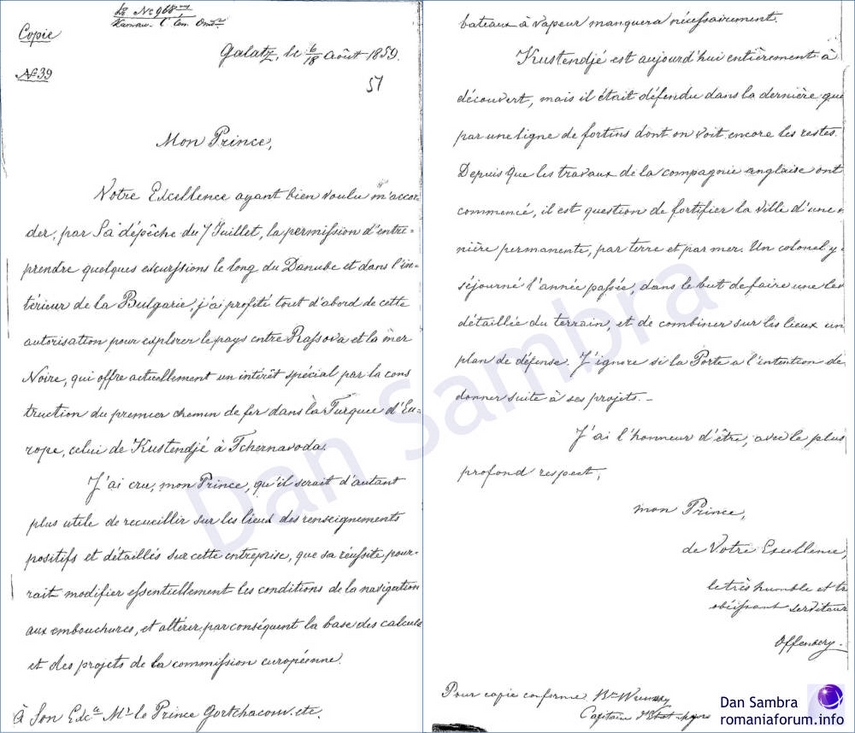 Copie
№ 39
Galatz, le 6/18 Août 1859.
51
Mon Prince,
Votre Excellence ayant bien voulu m'accor
der, par Sa dépêche du 7 Juillet, la permission d'entre=
prendre quelques excurssions le long du Danube et dans l'in=
térieur de la Bulgarie, j'ai profité tout d'abord de cette
autorisation pour explorer le pays entre Rassova et la mer
Noire, qui offre actuellement un intérêt spécial par la cons
truction du premier chemin de fer dans la Turquie d'Eu=
rope, celui de Kustendjé à Tchernavoda.
J'ai cru, mon Prince, qu'il serait d'autant
plus utile de recueillir sur les lieux des renseignements
positifs et détaillés sur cette entreprise, que sa réussite pour=
rait modifier essentiellement les conditions de la navigation
aux embouchures, et altérer par conséquent la base des calculs
et des projets de la commission européenne.
À Son Exc. Mr le Prince Gortchacow. etc.
bateaux à vapeur manquera nécessairement.
Kustendjé est aujourd'hui entièrement à
découvert, mais il était défendu dans la dernière gue
par une ligne de fortins dont on voit encore les restes.
Depuis que les travaux de la compagnie anglaise ont
commencé, il est question de fortifier la ville d'une
nière permanente, par terre et par mer. Un colonel y
séjourné l'année passée, dans le but de faire une
détaillée du terrain, et de combiner sur les lieux un
plan de défense. J'ignore si la Porte a l'intention de
donner suite à ses projets. —
J'ai l'honneur d'être, avec le plus
profond respect,
mon Prince,
de Votre Excellence,
le très humble et tr
obéissant serviteur
Offenberg.
Pour copie conforme
Capitaine
Dan Sambra
Dan Sambra
romaniaforum.info